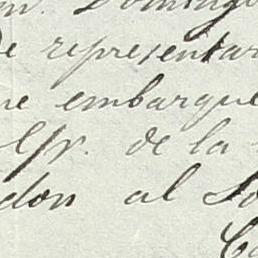 m. Domingo
de representar
ne embarque
Esp. de la
don al So